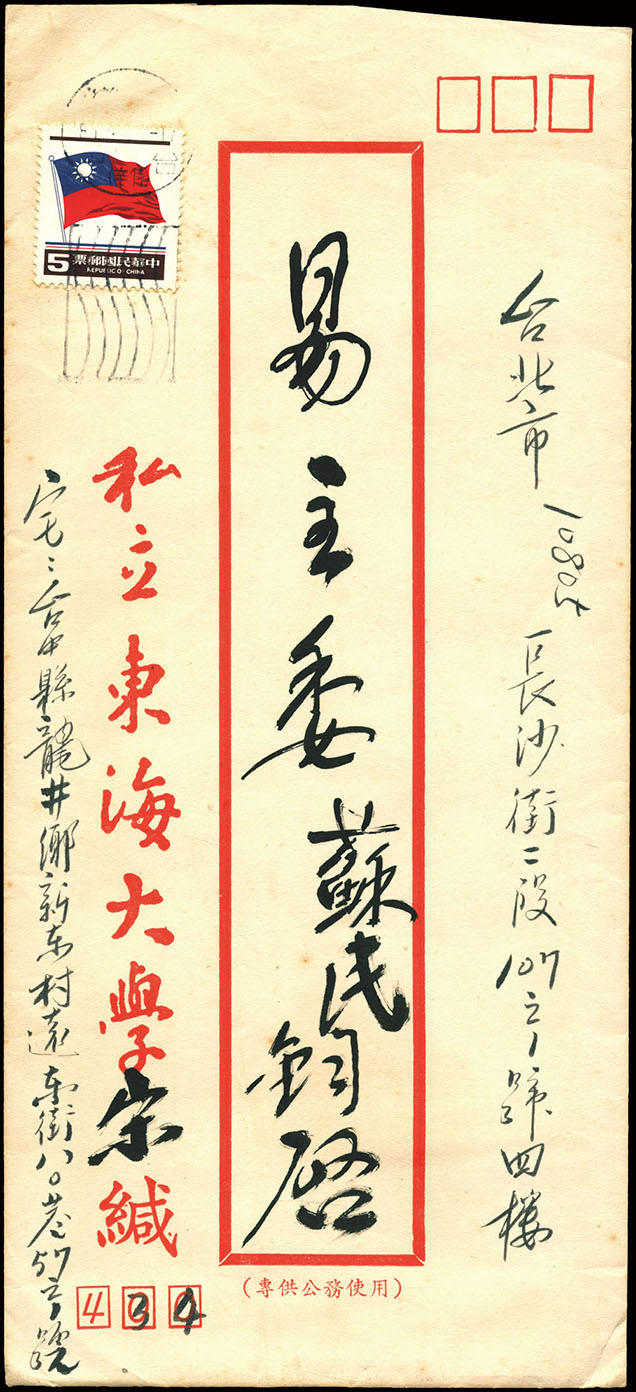 台北市10805長沙街二段107之1號四樓
易主委蘇民鈞啓
(專供公務使用)
私立東海大學宋緘
434
宅:台中縣龍井鄉新東村遠東街八〇巷57之號
中華民國郵票
5
REPUBLIC OF CHINA
台